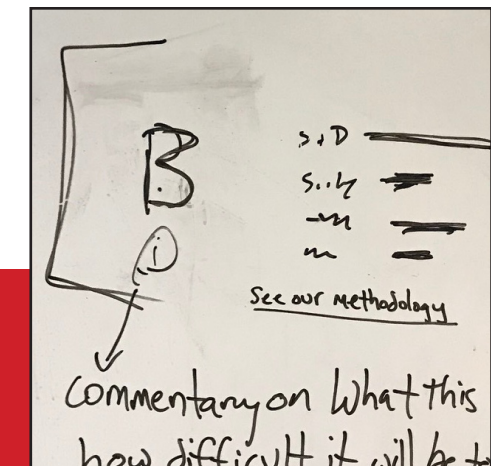 B
i
S.D
See our methodology
Commentary on What this
how difficult it will be to